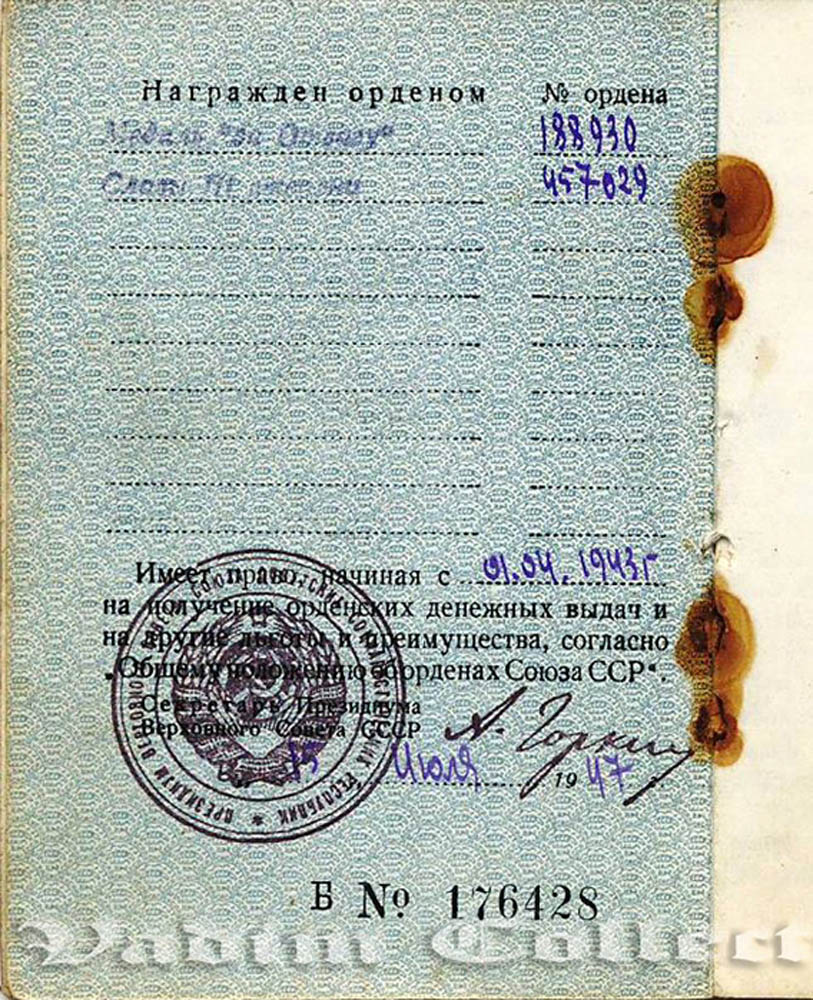 Награжден орденом № ордена
Медаль "за Отвагу" 188930
Слава III степени 457029
Имеет право, начиная с 01.04.1943г
на получение орденских денежных выдач и
на другие льготы и преимущества, согласно
„Общему положению об орденах Союза ССР“.
Секретарь Президиума
Верховного Совета СССР А. Горкин
15 Июля 1947
ПРЕЗИДИУМ ВЕРХОВНОГО СОВЕТА СОЮЗА СОВЕТСКИХ СОЦИАЛИСТИЧЕСКИХ РЕСПУБЛИК
Б № 176428
Vadim Collect